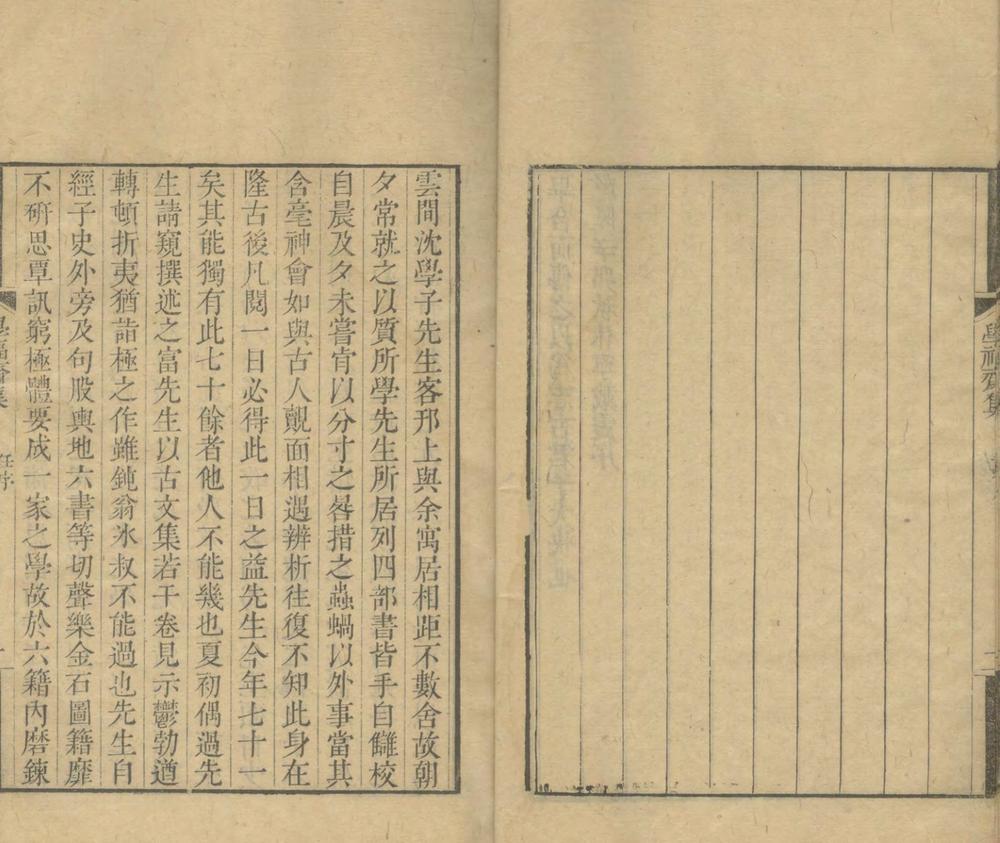 雲間沈學子先生客邗上與余寓居相距不數舍故朝
夕常就之以質所學先生所居列四部書皆手自讎校
自晨及夕未嘗肯以分寸之晷措之蟲蝸以外事當其
含毫神會如與古人覿面相遇辨析往復不知此身在
隆古後凡閱一日必得此一日之益先生今年七十一
矣其能獨有此七十餘者他人不能幾也夏初偶過先
生請窺撰述之富先生以古文集若干卷見示鬱勃遒
轉頓折夷猶詰極之作雖鈍翁氷叔不能過也先生自
經子史外旁及句股輿地六書等切聲樂金石圖籍靡
不硏思覃訊窮極體要成一家之學故於六籍內磨鍊
學福齋集
任序